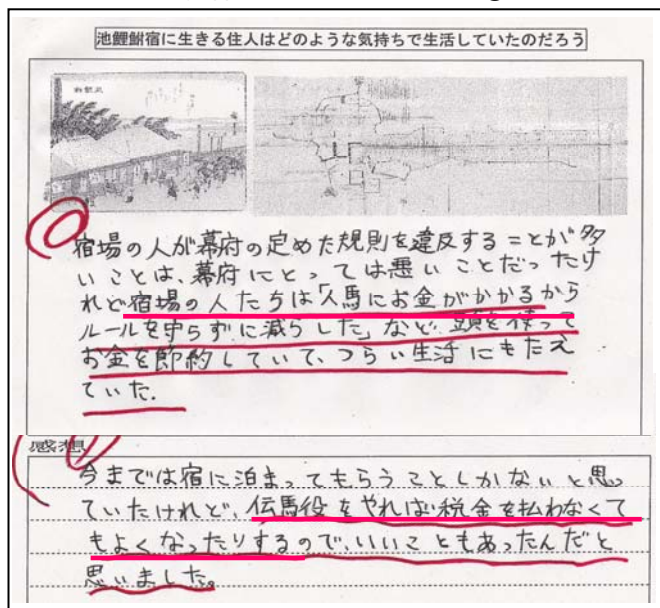 池鯉鮒宿に生きる住人はどのような気持ちで生活していたのだろう
宿場の人が幕府の定めた規則を違反することが多
いことは、幕府にとっては悪いことだったけ
れど宿場の人たちは「人馬にお金がかかるから
ルールを守らずに減らした」など、頭を使って
お金を節約していて、つらい生活にもたえ
ていた.
感想
今までは宿に泊まってもらうことしかないと思っ
ていたけれど、伝馬役をやれば税金を払わなくて
もよくなったりするので、いいこともあったんだと
思いました。